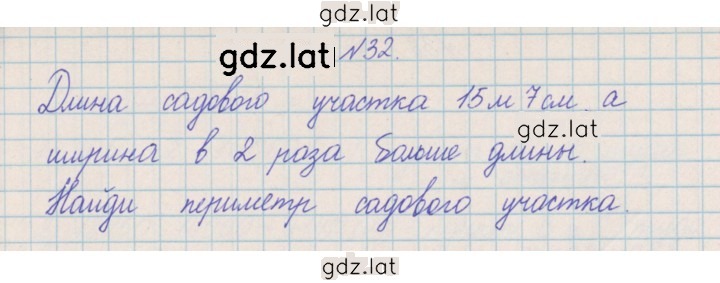 gdz.lat
gdz.lat №32.
Длина садового участка 15м 7см. а
gdz.lat
ширина в 2 раза больше длины.
Найди периметр садового участка.
gdz.lat